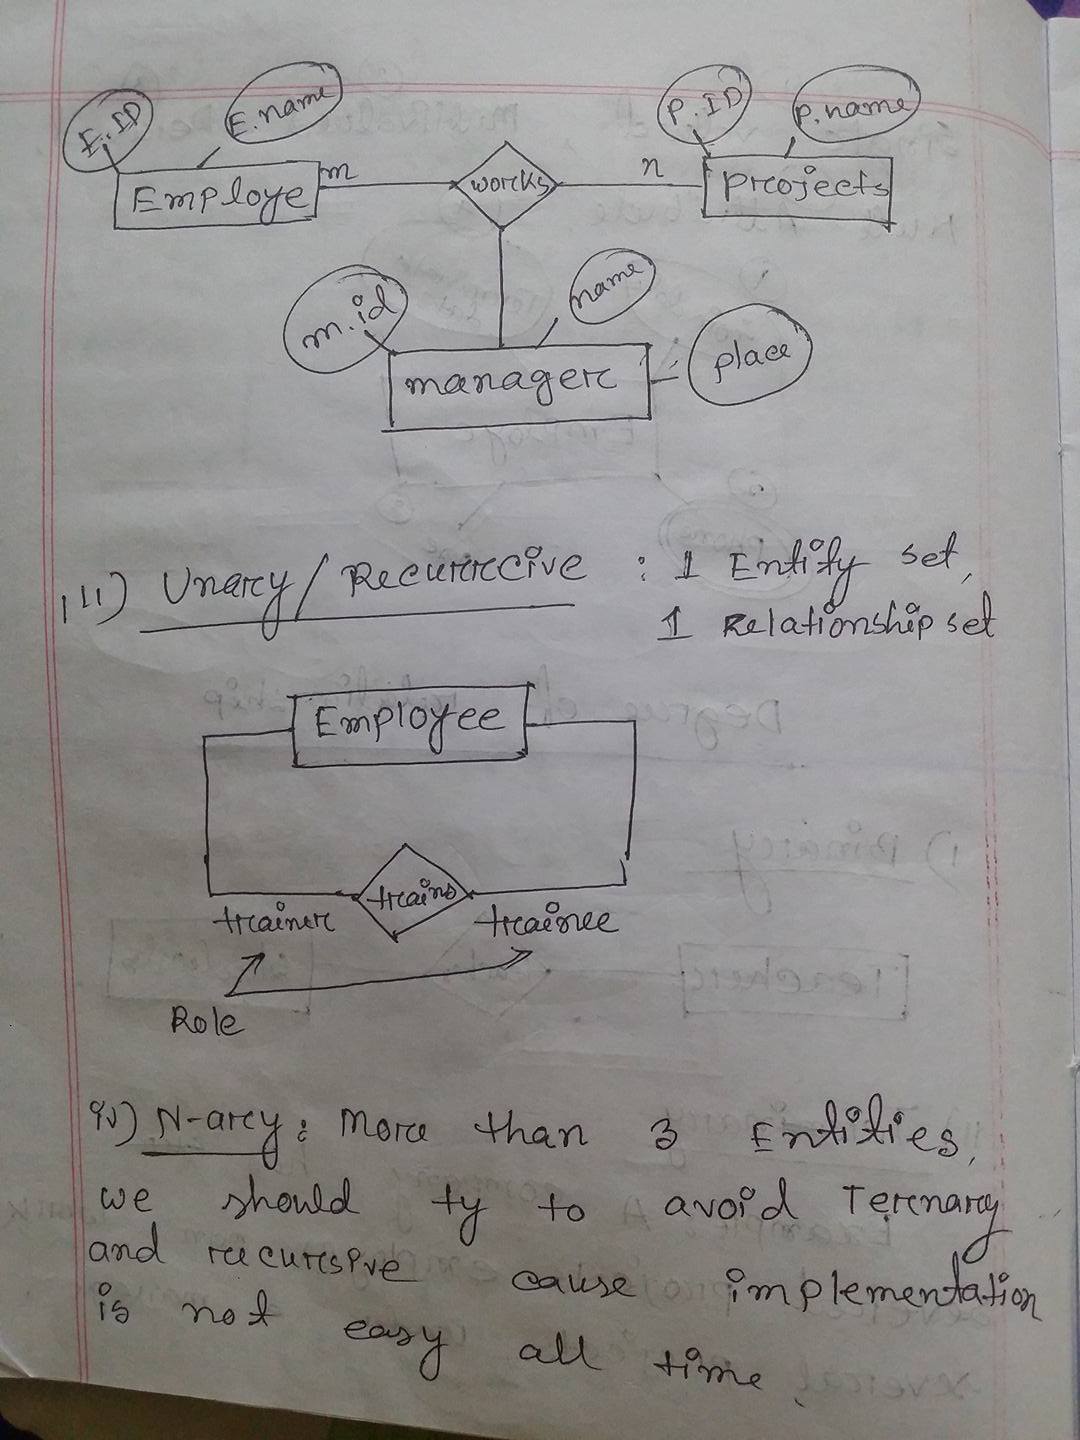 E.ID E.name P.ID P.name
Employe m works n projects
m.id name
manager place
iii) Unary/Recurrcive : 1 Entity set,
1 Relationship set
Employee
trains
trainer trainee
Role
iv) N-ary: More than 3 Entities,
we should ty to avoid Ternary
and recursive cause implementation
is not easy all time,